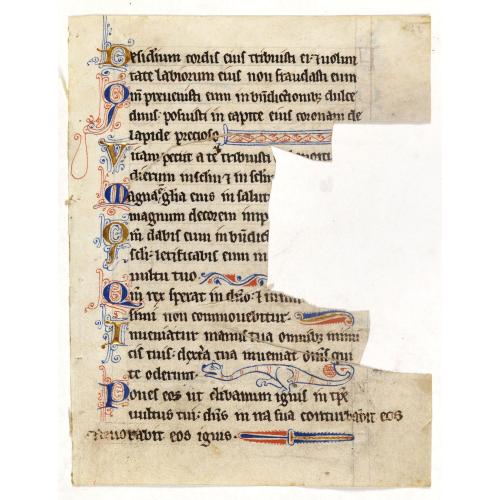 Desiderium cordis eius tribuisti ei ⁊ uolun
tate labiorum eius non fraudasti eum
Qm preuenisti eum in bndictionibꝫ dulce
dinis: posuisti in capite eius coronam de
lapide precioso
Vitam peciit a te ⁊ tribuisti
dierum in sclm ⁊ in sclm
Magna glia eius in saluta
magnum decorem inpo
Qm dabis eum in bndic
scli: letificabis eum in
uultu tuo.
Qm rex sperat in dno: ⁊ in
simi non commouebitur.
Inueniatur manus tua omnibꝫ inimi
cis tuis: dextra tua inueniat oms qui
te oderunt.
Pones eos ut clibanum ignis in tpe
uultus tui: dns in ira sua conturbabit eos
deuorabit eos ignis.